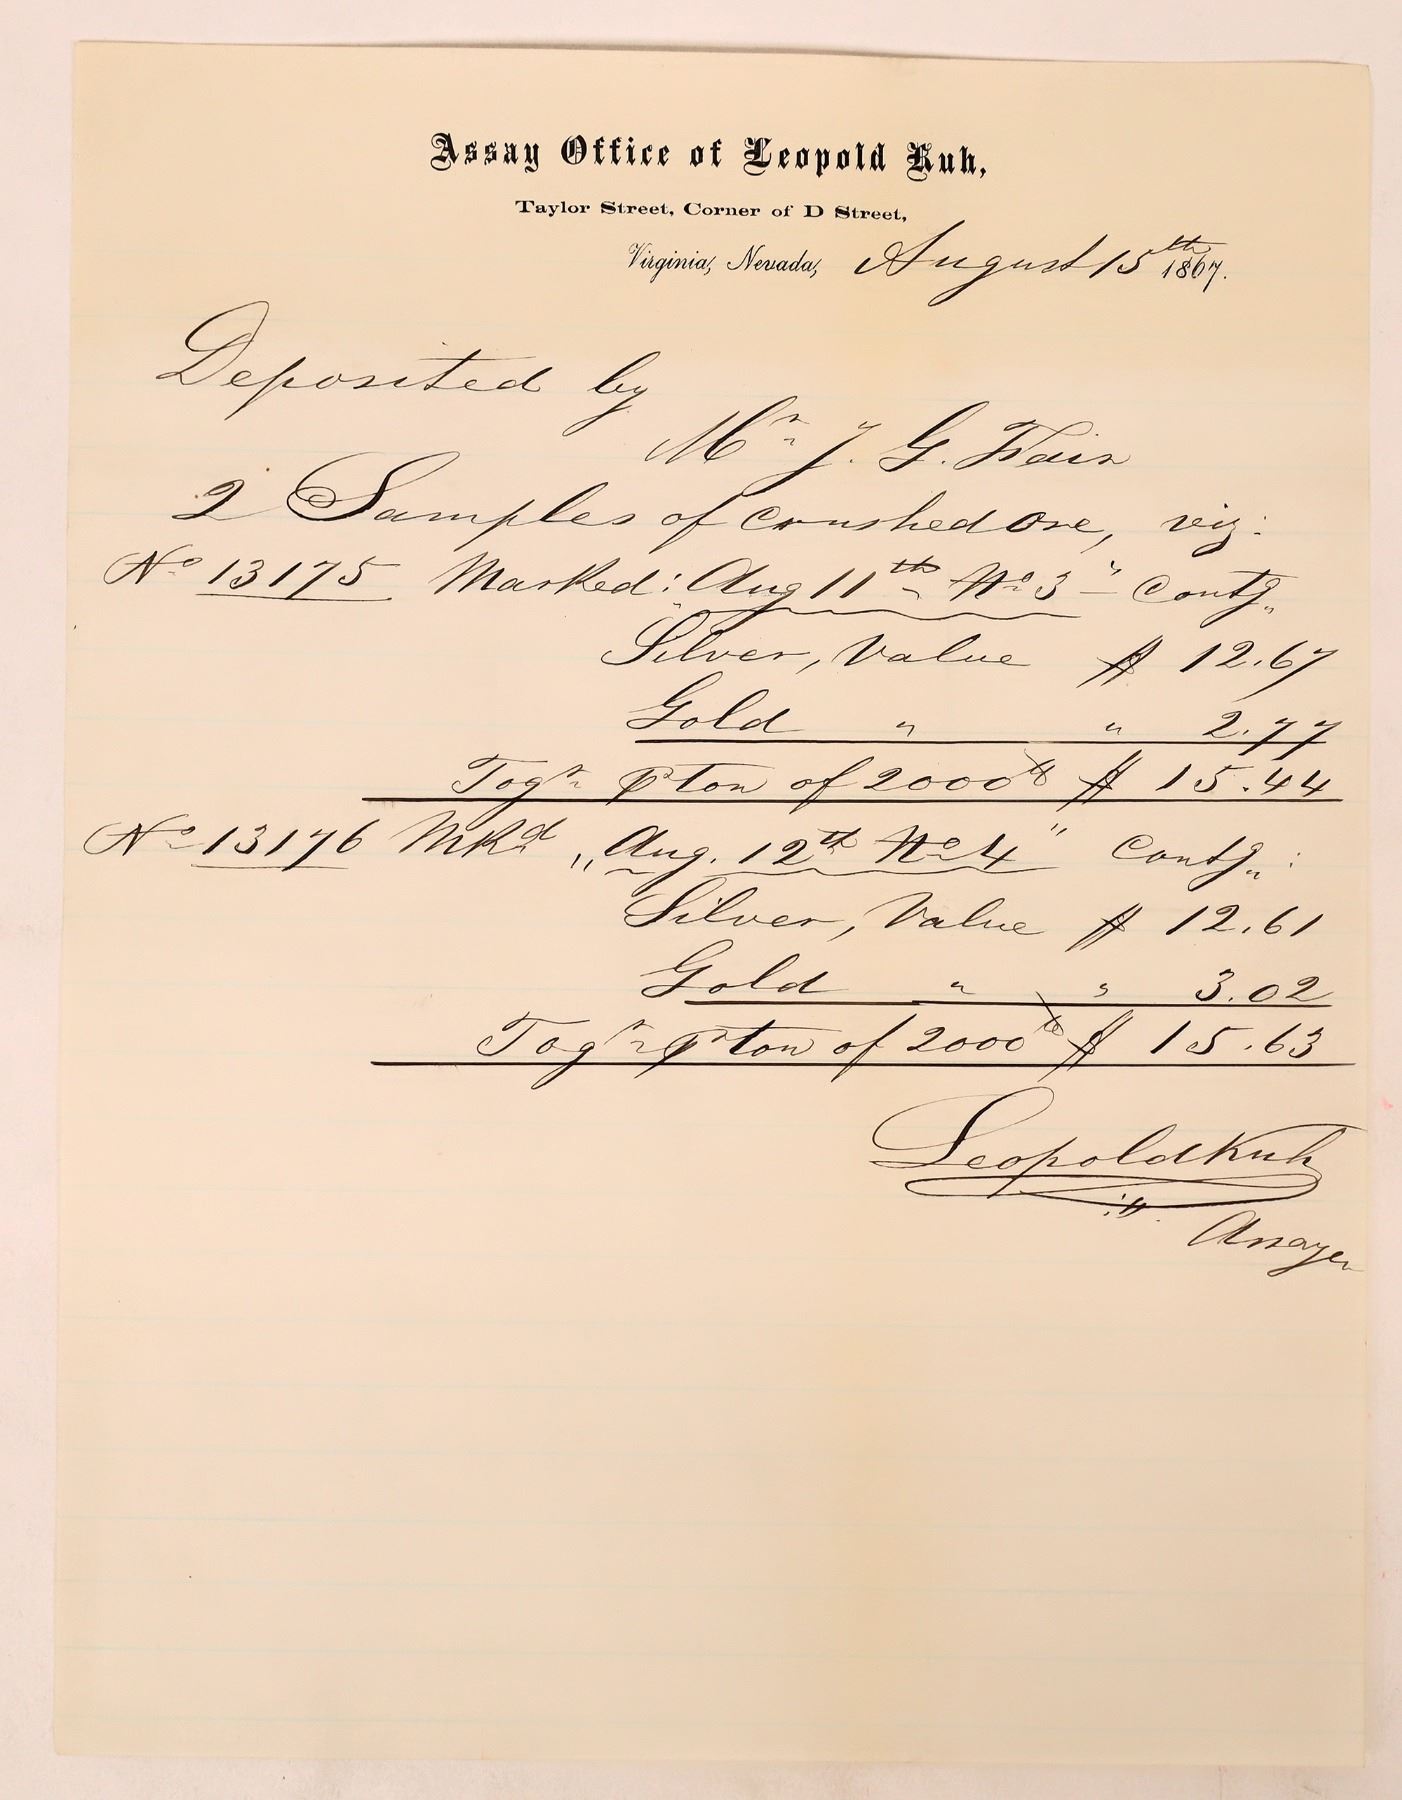 Assay Office of Leopold Kuh,
Taylor Street, Corner of D Street,
Virginia, Nevada, August 15th 1867.
Deposited by
Mr J. G. Fair
2 Samples of crushed Ore, viz:
No 13175 Marked: "Aug 11th No 3" - Contg
Silver, Value $ 12.67
Gold " " 2.77
Togr pr ton of 2000 lb $ 15.44
No 13176 Mkd "Aug. 12th No 4" Contg:
Silver, Value $ 12.61
Gold " " 3.02
Togr pr ton of 2000 lb $ 15.63
Leopold Kuh
Assayer